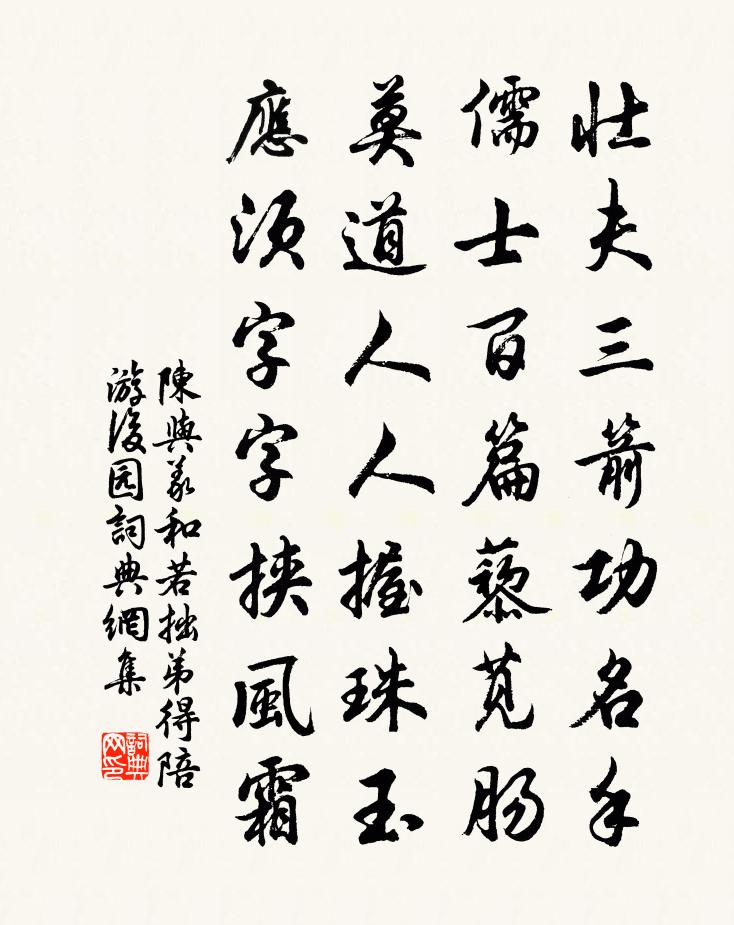 壯夫三箭功名手
儒士百篇藜莧腸
莫道人人握珠玉
應須字字挾風霜
陳與義和若拙弟得陪
游後园詞典網集
詞典网印